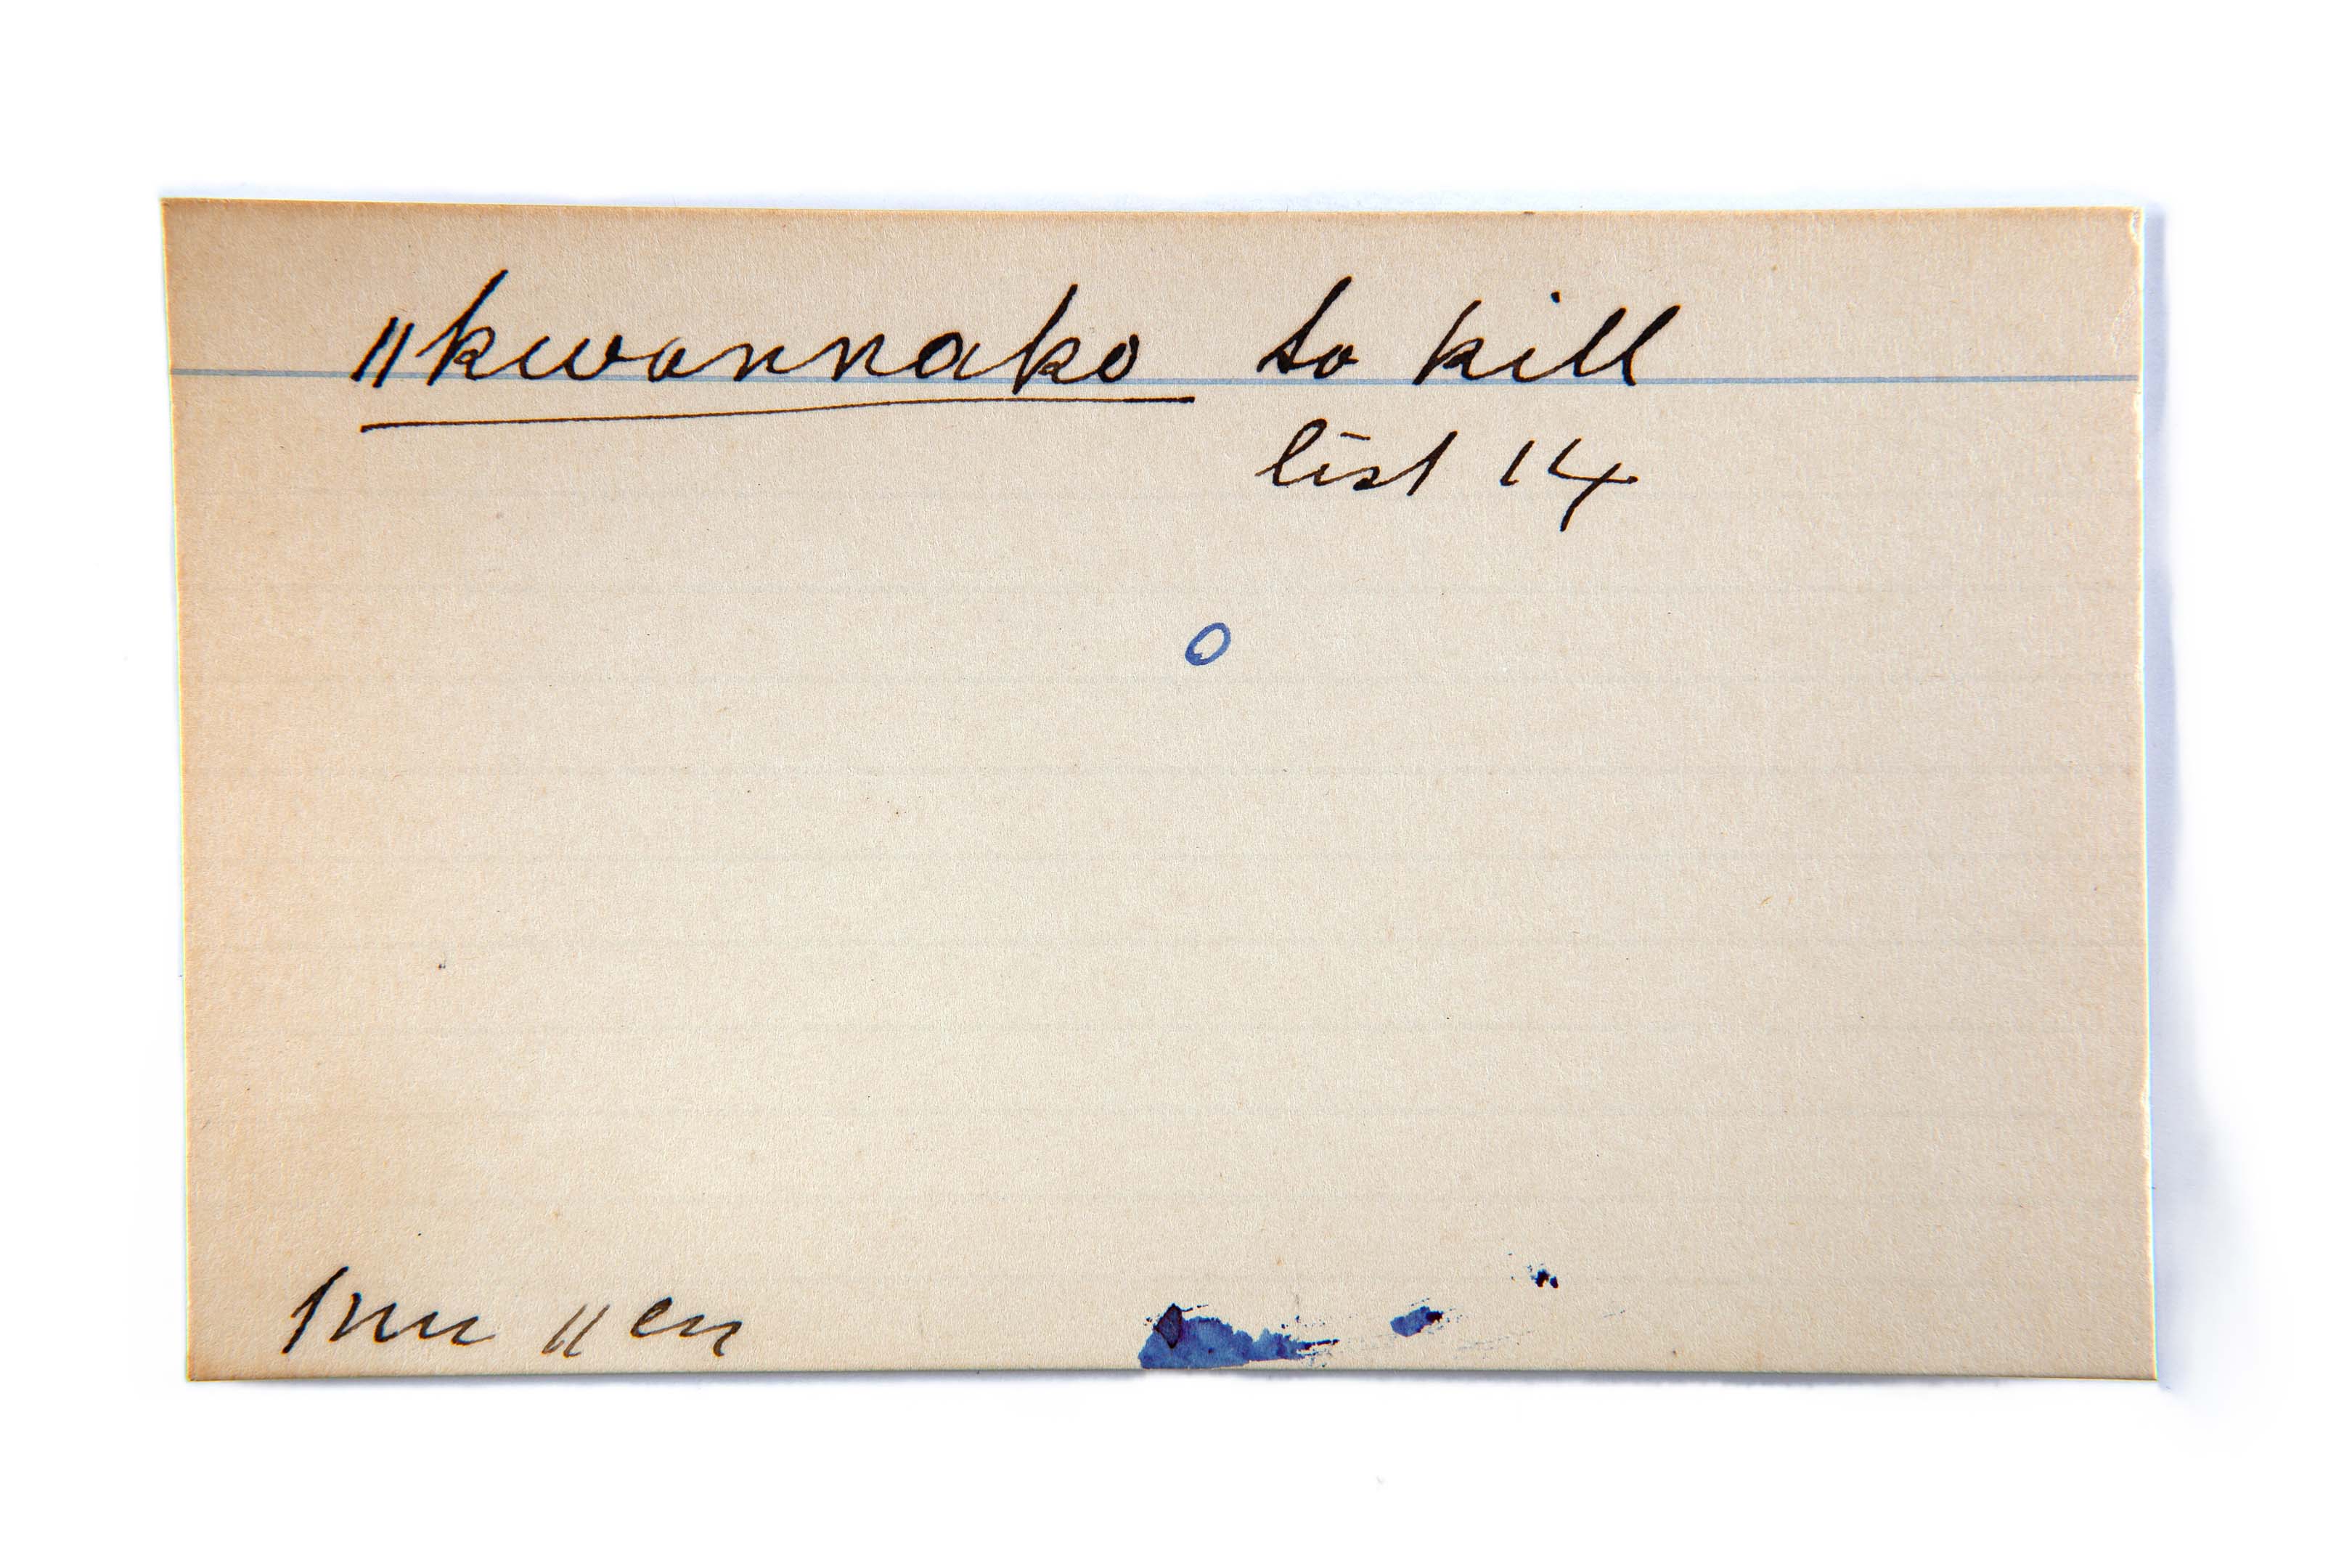 ǁkwannako to kill
list 14
o
ǀnu ǁen